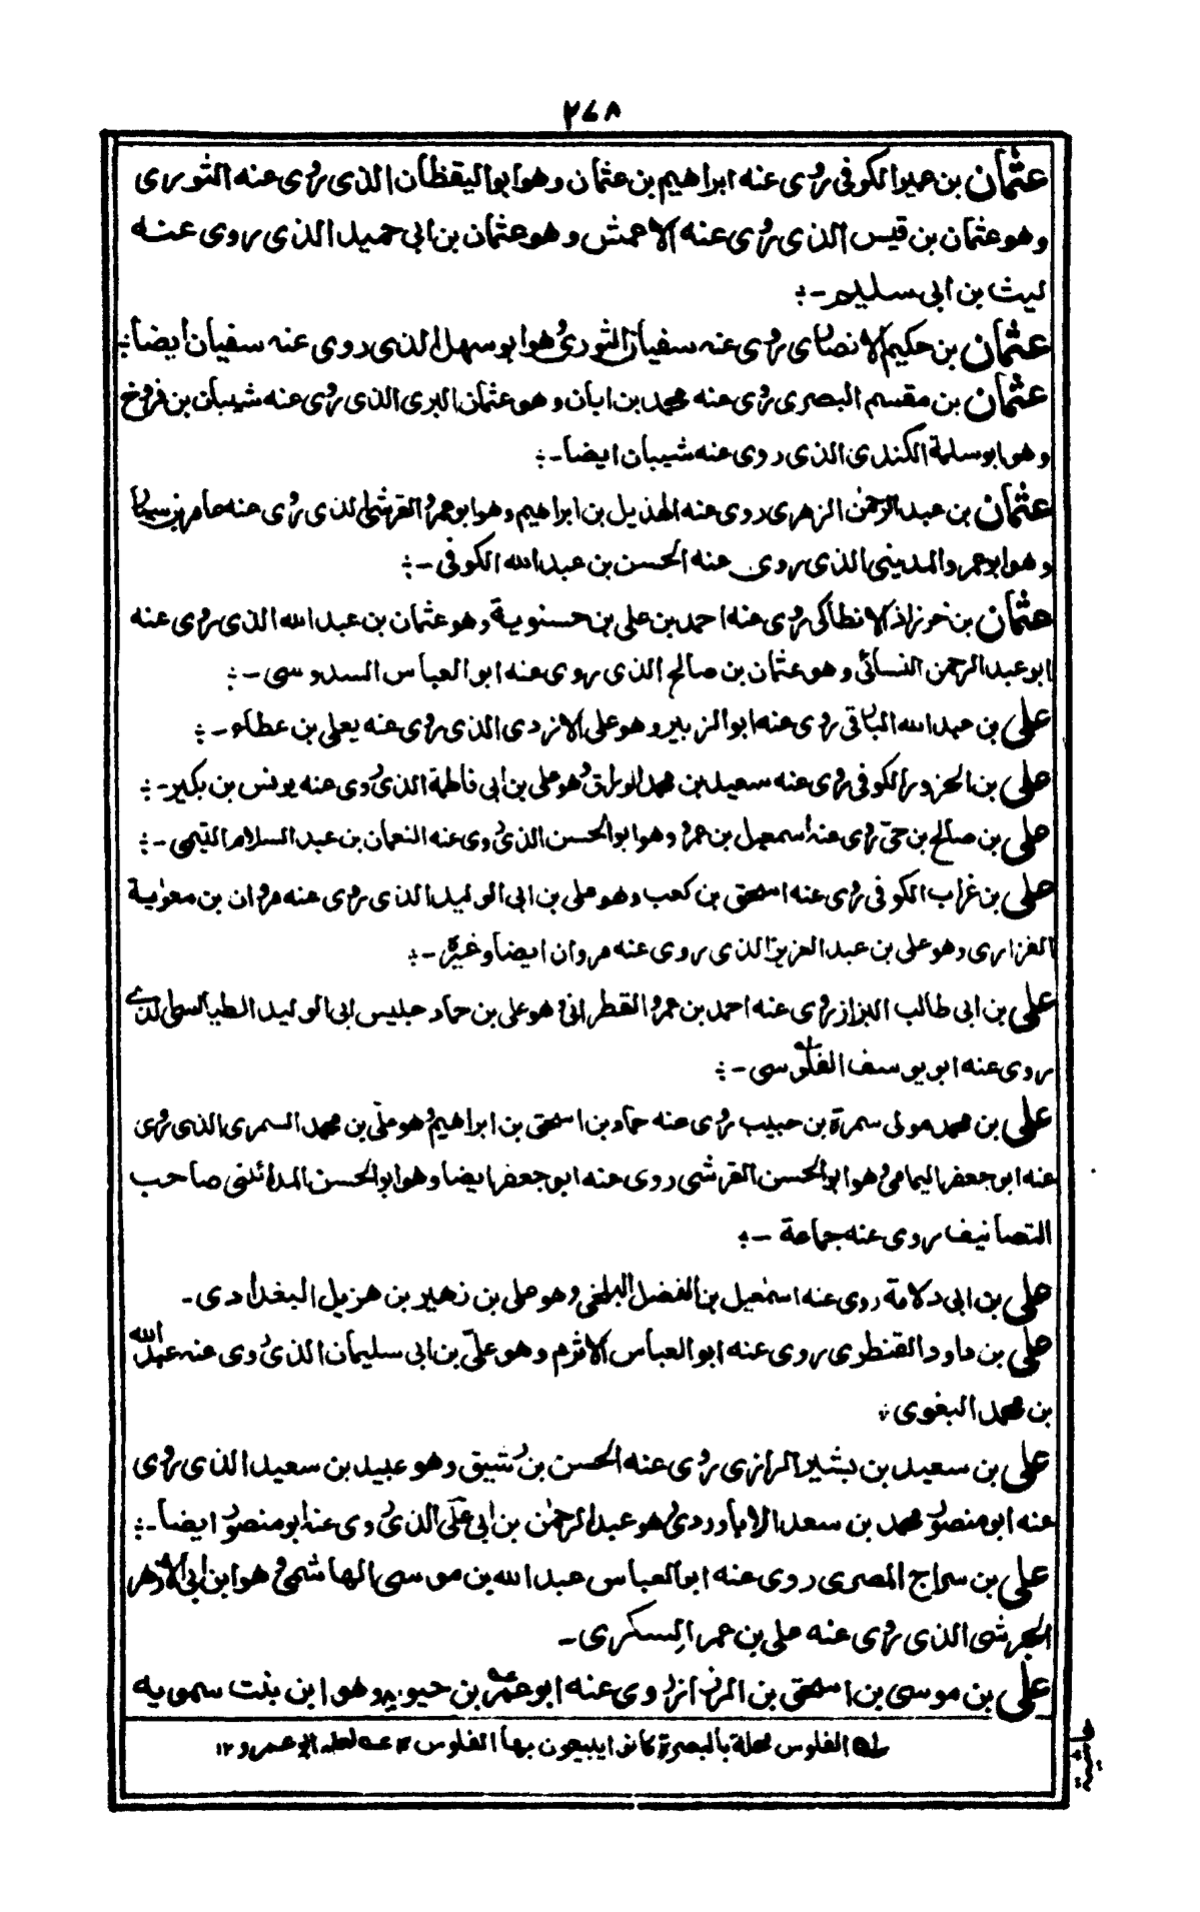 ٢٦٨
عثمان بن عمير الكوفي روى عنه ابراهيم بن عثمان وهو ابو اليقظان الذى روى عنه الثورى
وهو عثمان بن قيس الذى روى عنه الاعمش وهو عثمان بن ابى حميد الذى روى عنه
ليث بن ابى سليم -:
عثمان بن حكيم الانصارى روى عنه سفيان الثورى وهو ابو سهل الذى روى عنه سفيان ايضا:
عثمان بن مقسم البصرى روى عنه محمد بن ابان وهو عثمان البرى الذى روى عنه شيبان بن فروخ
وهو ابو سلمة الكندى الذى روى عنه شيبان ايضا -:
عثمان بن عبد الرحمٰن الزهرى روى عنه الهذيل بن ابراهيم وهو ابو عمرو القرشى الذى روى عنه عامر بن
وهو ابو عمرو المدينى الذى روى عنه الحسن بن عبد الله الكوفى -:
عثمان بن خرزاذ الانطاكى روى عنه احمد بن على بن حسنوية وهو عثمان بن عبد الله الذى روى عنه
ابو عبد الرحمن النسائى وهو عثمان بن صالح الذى روى عنه ابو العباس السدوسى -:
على بن عبد الله البارقى روى عنه ابو الزبير وهو على الازدى الذى روى عنه يعلى بن عطاء -:
على بن الحزور الكوفى روى عنه سعيد بن محمد الوراق وهو على بن ابى فاطمة الذى روى عنه يونس بن بكير -:
على بن صالح بن حى روى عنه اسمعيل بن عمرو وهو ابو الحسن الذى روى عنه النعمان بن عبد السلام التيمى -:
على بن غراب الكوفى روى عنه اسحق بن كعب وهو على بن ابى الوليد الذى روى عنه مروان بن معٰوية
الفزارى وهو على بن عبد العزيز الذى روى عنه مروان ايضا وغيره -:
على بن ابى طالب البزاز روى عنه احمد بن عمرو القطرانى وهو على بن حماد جليس ابى الوليد الطيالسى الذى
روى عنه ابو يوسف الفلوسى -:
على بن محمد مولى سمرة بن حبيب روى عنه حماد بن اسحق بن ابراهيم وهو على بن محمد السمرى الذى روى
عنه ابو جعفر اليمامى وهو ابو الحسن القرشى روى عنه ابو جعفر ايضا وهو ابو الحسن المدائنى صاحب
التصانيف روى عنه جماعة -:
على بن ابى دلامة روى عنه اسمٰعيل بن الفضل البلخى وهو على بن زهير بن هزيل البغدادى -
على بن داود القنطرى روى عنه ابو العباس الاثرم وهو على بن ابى سليمان الذى روى عنه عبد الله
بن محمد البغوى:
على بن سعيد بن بشير الرازى روى عنه الحسن بن رشيق وهو عبيد بن سعيد الذى روى
عنه ابو منصور محمد بن سعد الاباوردى وهو عبد الرحمٰن بن ابى على الذى روى عنه ابو منصور ايضا -:
على بن سراج المصرى روى عنه ابو العباس عبد الله بن موسى الهاشمى وهو ابن ابى الازهر
الجرشى الذى روى عنه على بن عمر السكرى -
على بن موسى بن اسحق بن الرزاز روى عنه ابو عمر بن حيويه وهو ابن بنت سمويه
له الفلوس محلة بالبصرة كانوا يبيعون بها الفلوس ١٢ عه لعله ابو عمرو ١٢
حاشية